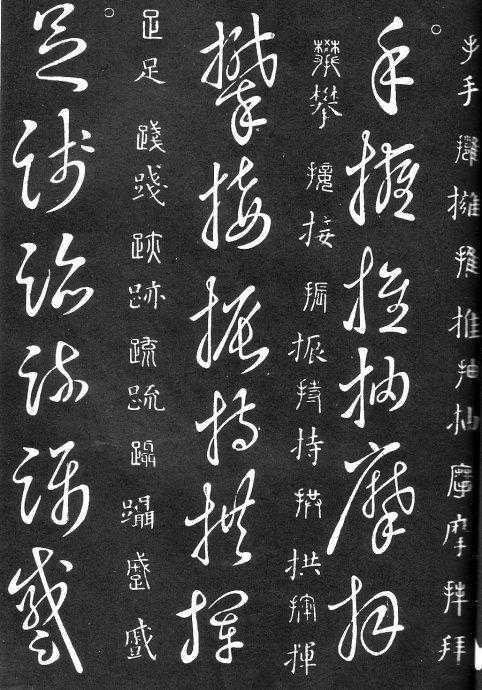 手手擁擁推推抽抽摩摩拜拜
手擁推抽摩拜
攀攀接接振振持持拱拱揮揮
攀接振持拱揮
足足踐踐跡跡疏疏躡躡
足踐跡疏躡